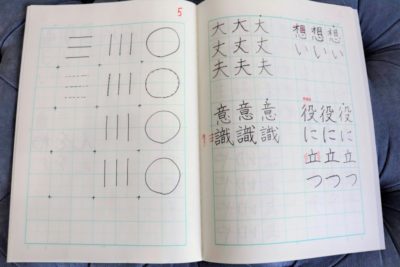 想い
想い
想い
役に立つ
役に立つ
役に立つ
大丈夫
大丈夫
大丈夫
意識
意識
意識
5